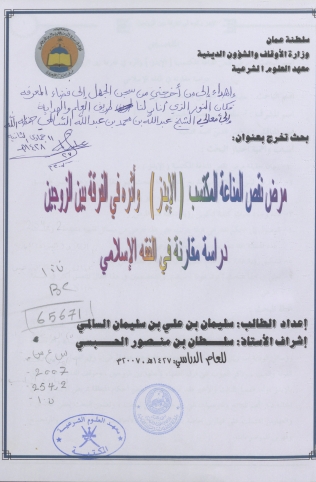 سلطنة عمان
وزارة الأوقاف والشؤون الدينية
معهد العلوم الشرعية
وإهداء إلى من أخرجني من سجن الجهل إلى فضاء المعرفة
مكان النور الذي أنار لنا طريق العلم والهداية
الشيخ عبدالله بن محمد بن عبدالله
بحث تخرج بعنوان:
مرض نقص المناعة المكتسب (الإيدز) وأثره في الفرقة بين الزوجين
دراسة مقارنة في الفقه الإسلامي
BC
65671
إعداد الطالب: سليمان بن علي بن سليمان السالمي
إشراف الأستاذ: سلطان بن منصور الحبسي
للعام الدراسي: ١٤٢٧هـ، ٢٠٠٧م
س ع م
2007
2542
معهد العلوم الشرعية
المكتبة